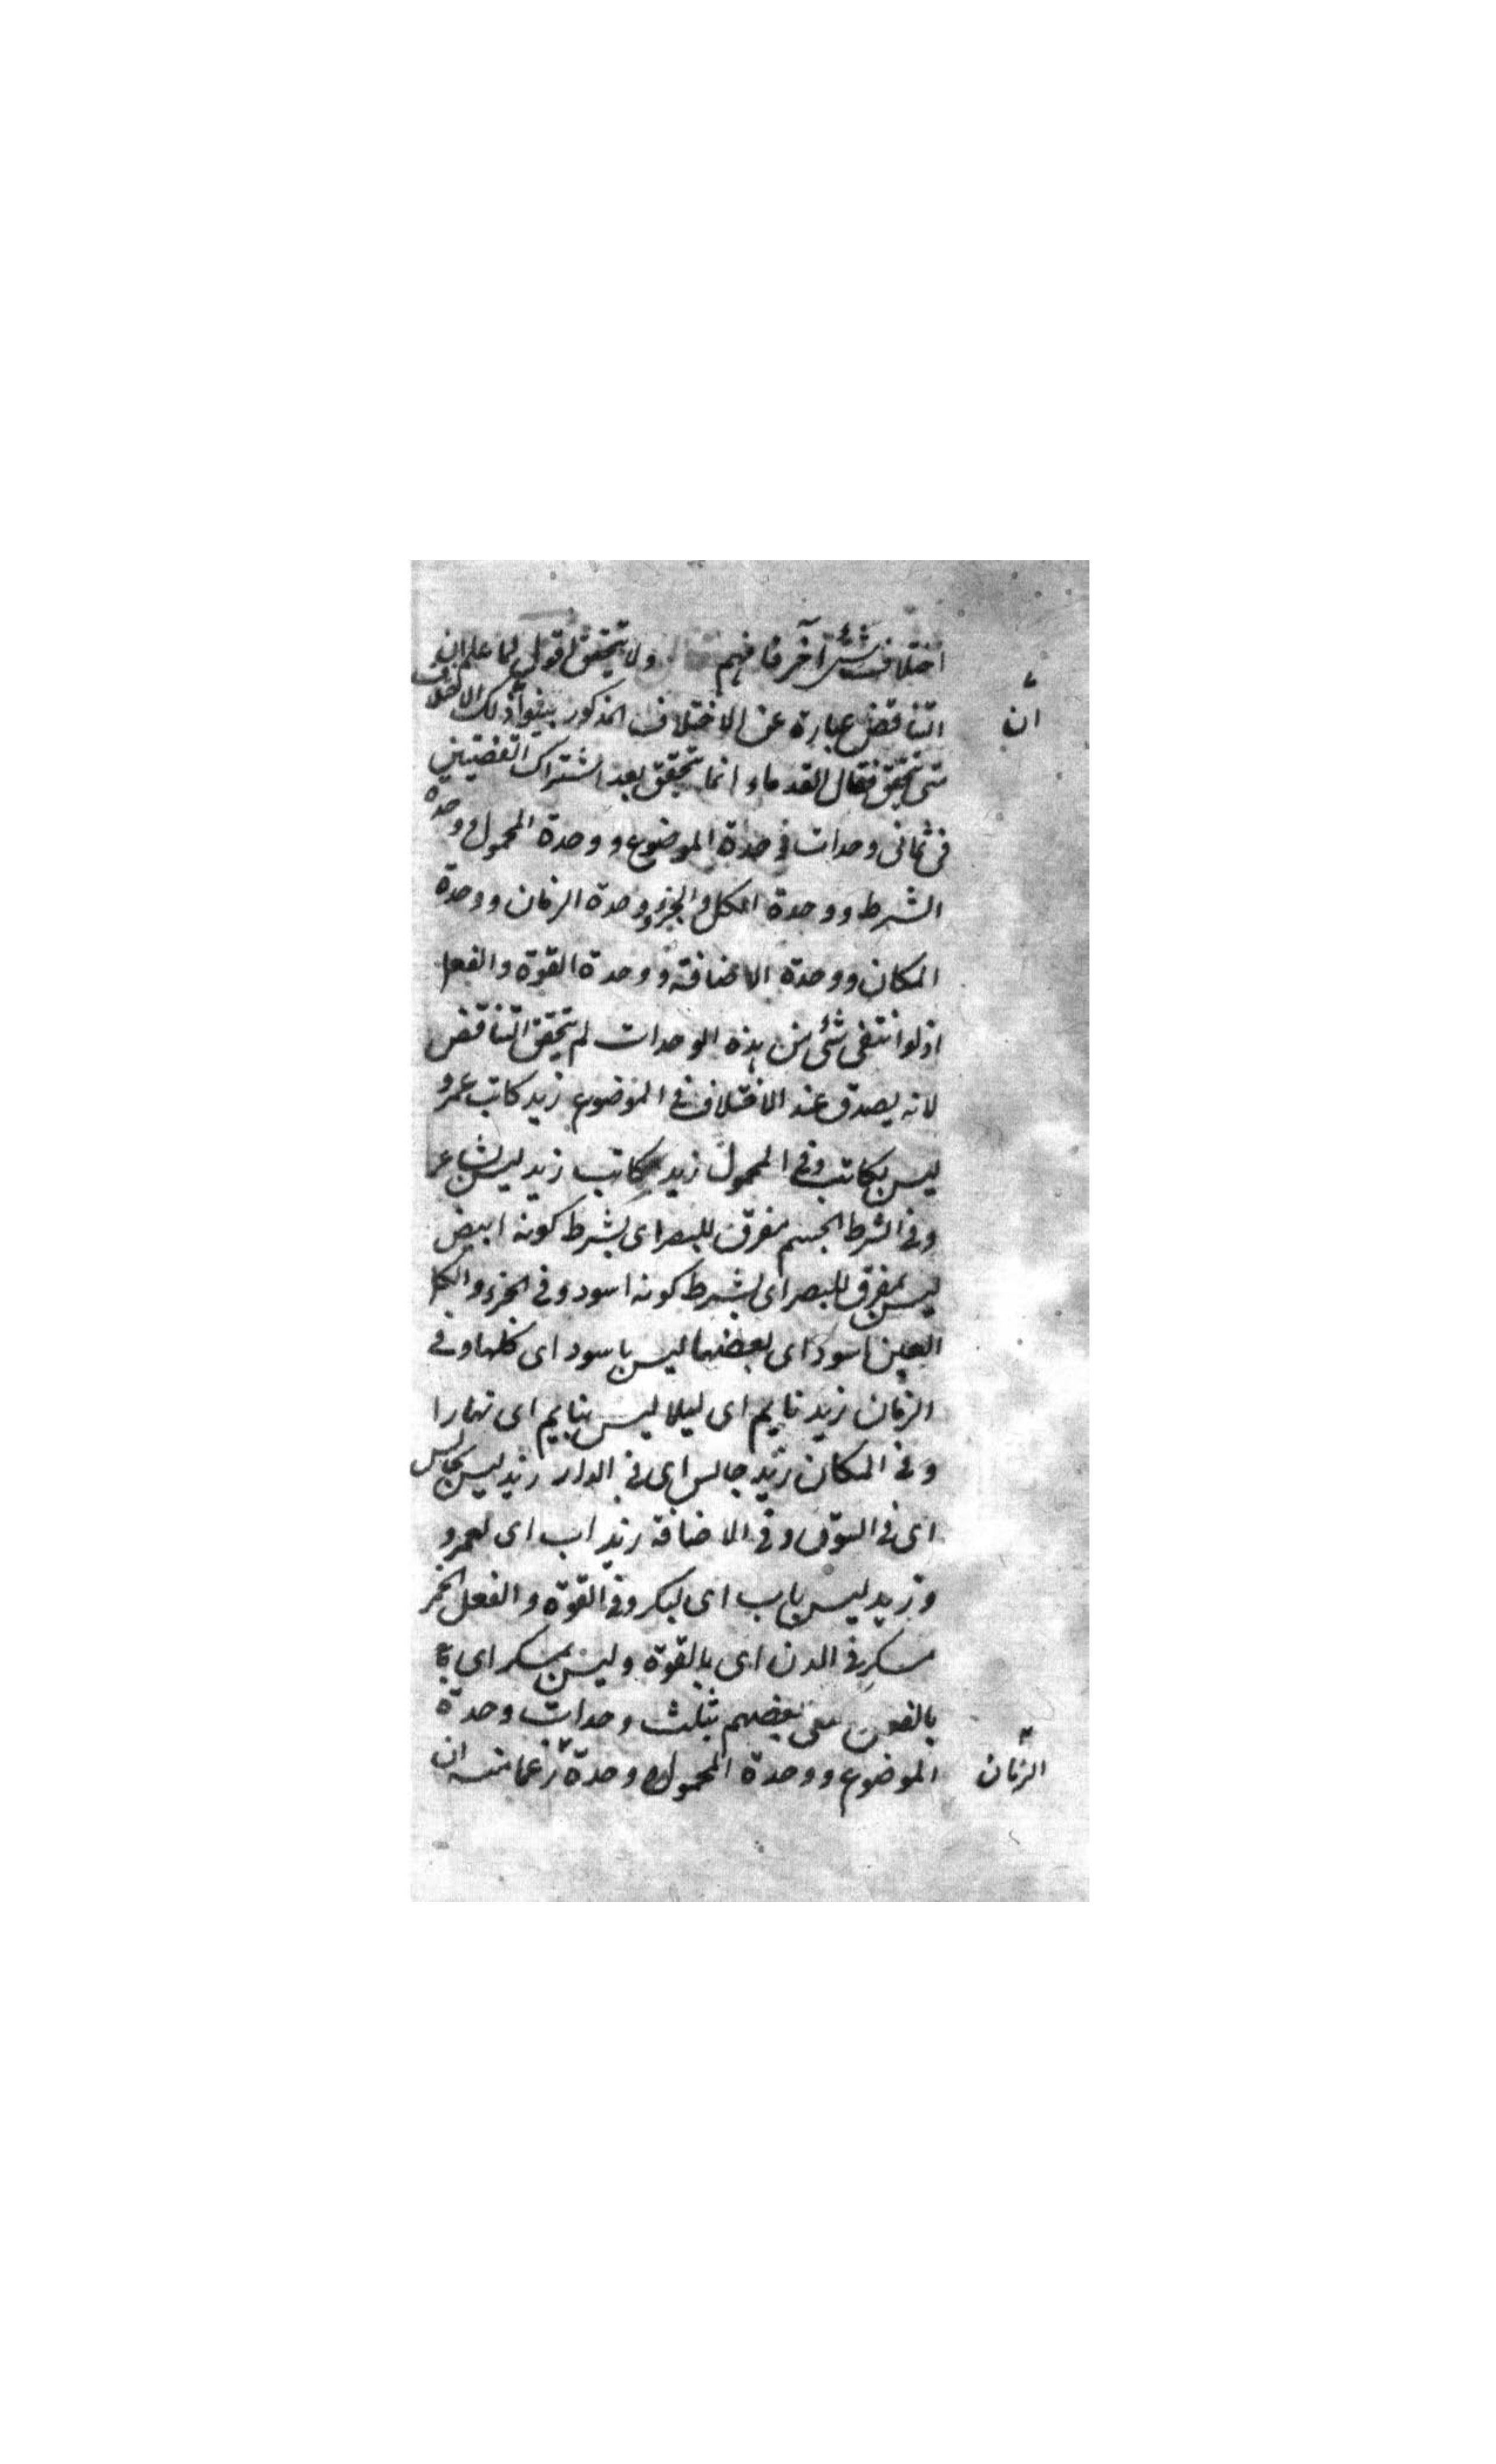 اختلاف شئ آخر فافهم قال ولا يتحقق اقول لما علم ان
التناقض عبارة عن الاختلاف المذكور بينوا ذلك الاختلاف
متى تحقق فقال القدماء انما يتحقق بعد اشتراك القضيتين
فى ثمانى وحدات وحدة الموضوع ووحدة المحمول ووحدة
الشرط ووحدة الكل والجزء ووحدة الزمان ووحدة
المكان ووحدة الاضافة ووحدة القوة والفعل
اذ لو انتفى شئ من هذه الوحدات لم يتحقق التناقض
لانه يصدق عند الاختلاف فى الموضوع زيد كاتب عمرو
ليس بكاتب وفى المحمول زيد كاتب زيد ليس بشاعر
وفى الشرط الجسم مفرق للبصر اى بشرط كونه ابيض
ليس بمفرق للبصر اى بشرط كونه اسود وفى الجزء والكل
العين اسود اى بعضها ليس باسود اى كلها وفى
الزمان زيد نايم اى ليلا ليس بنايم اى نهارا
وفى المكان زيد جالس اى فى الدار زيد ليس بجالس
اى فى السوق وفى الاضافة زيد اب اى لعمرو
وزيد ليس باب اى لبكر وفى القوة والفعل الخمر
مسكر فى الدن اى بالقوة وليس بمسكر اى
بالفعل بعضهم بثلث وحدات وحدة
الموضوع ووحدة المحمول ووحدة زعما منه ان
ان
الزمان